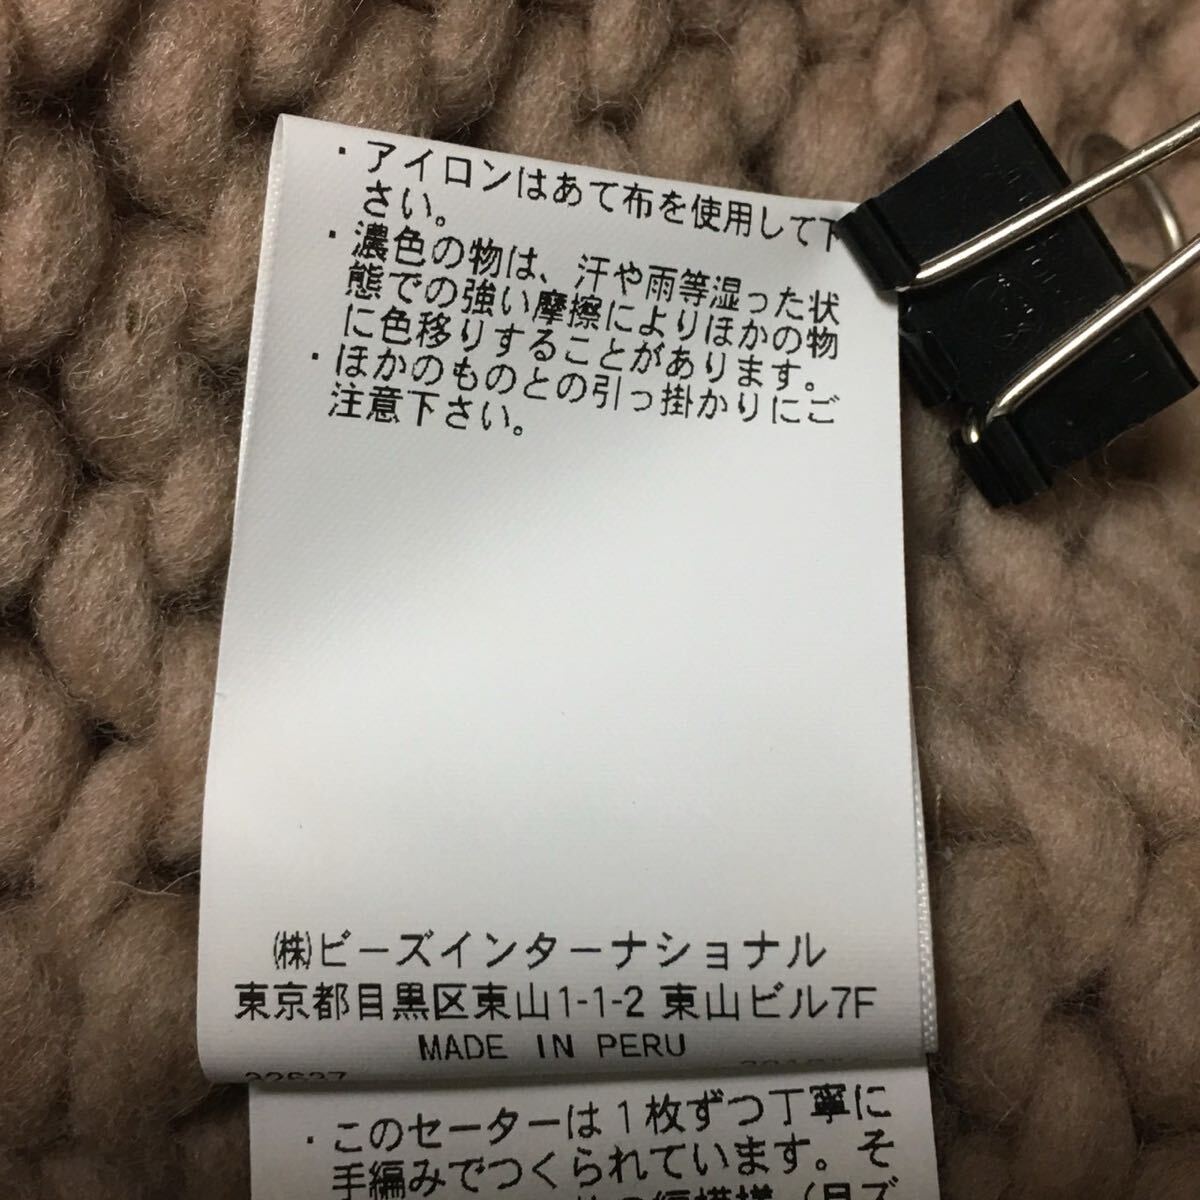 ・アイロンはあて布を使用して下
さい。
・濃色の物は、汗や雨等湿った状
態での強い摩擦によりほかの物
に色移りすることがあります。
・ほかのものとの引っ掛かりにご
注意下さい。
㈱ビーズインターナショナル
東京都目黒区東山1-1-2 東山ビル7F
MADE IN PERU
・このセーターは1枚ずつ丁寧に
手編みでつくられています。そ